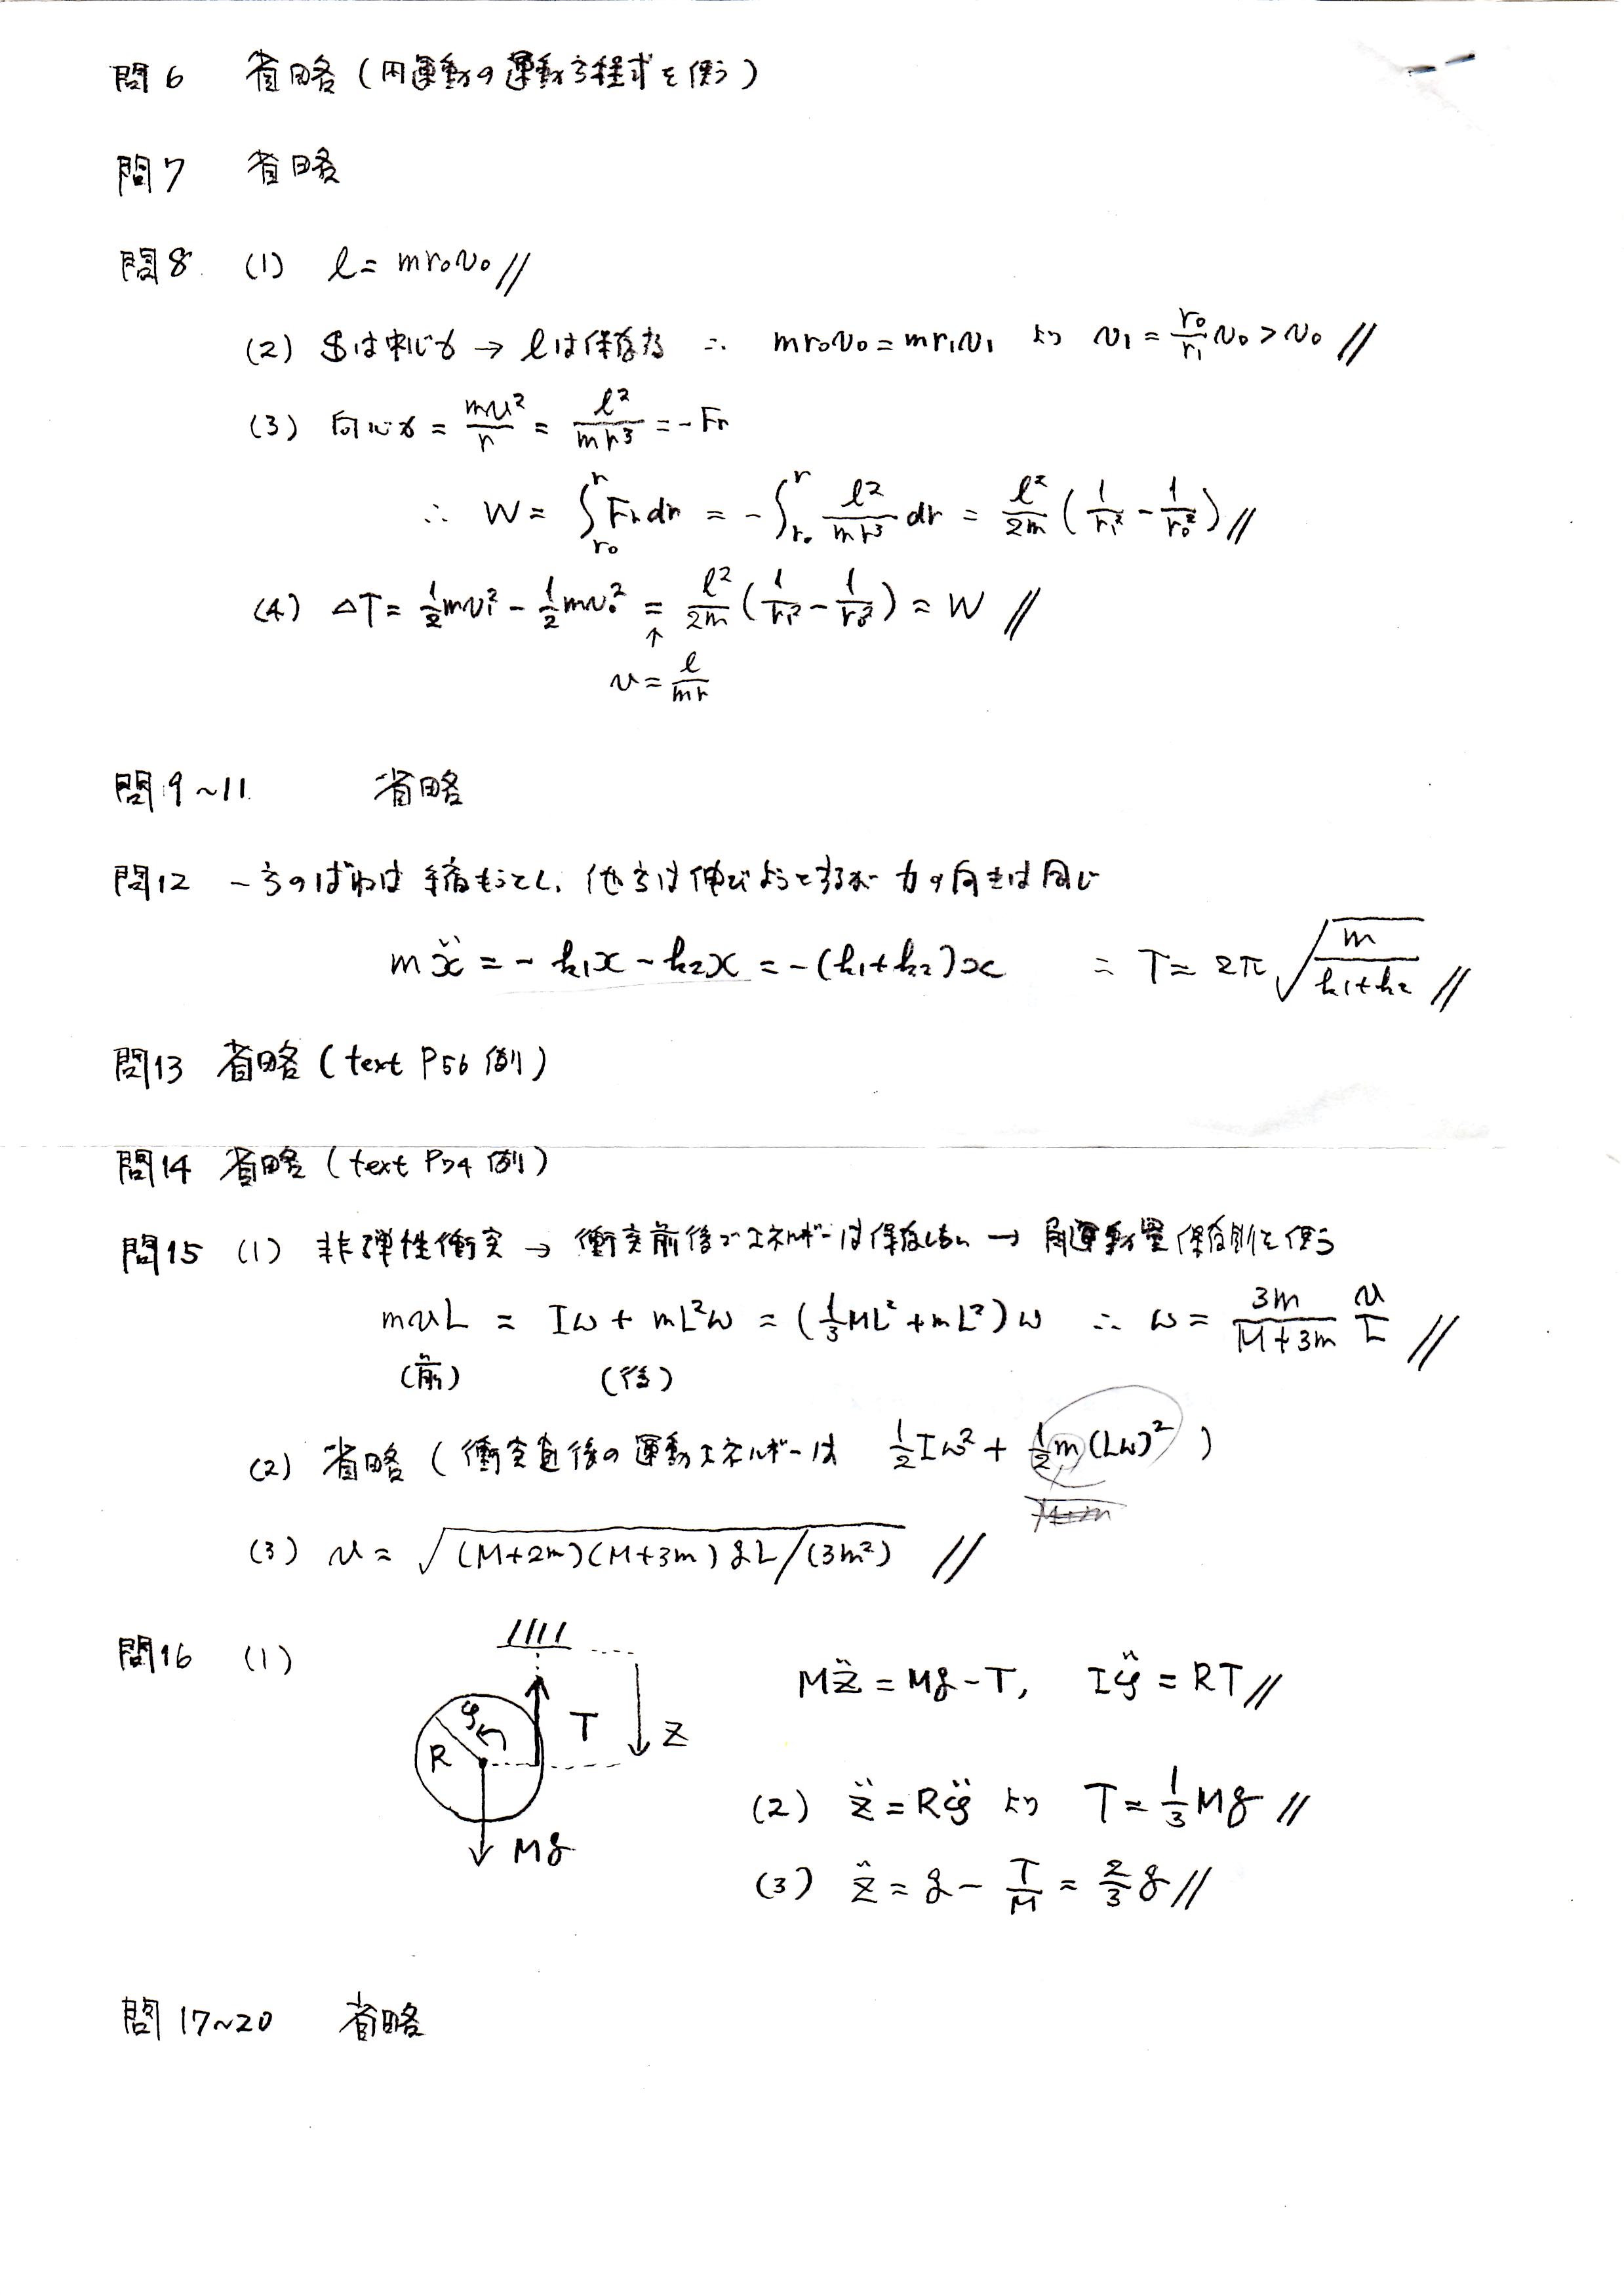 問6 省略(円運動の運動方程式を使う)
問7 省略
問8 (1) l = mr₀v₀ //
(2) Sは中心力 → lは保存する ∴ mr₀v₀ = mr₁v₁ より v₁ = r₀/r₁ v₀ > v₀ //
(3) 向心力 = mv²/r = l²/mr³ = -Fr
∴ W = ∫_{r₀}^{r} Fr dr = -∫_{r₀}^{r} l²/mr³ dr = l²/2m (1/r₁² - 1/r₀²) //
(4) ΔT = 1/2 mv₁² - 1/2 mv₀² = l²/2m (1/r₁² - 1/r₀²) = W //
↑
v = l/mr
問9~11 省略
問12 一方のばねは縮もうとし、他方は伸びようとするが力の向きは同じ
mẍ = - k₁x - k₂x = -(k₁+k₂)x ∴ T = 2π√(m/(k₁+k₂)) //
問13 省略(text P56 例)
問14 省略(text P74 例)
問15 (1) 非弾性衝突 → 衝突前後でエネルギーは保存しない → 角運動量保存則を使う
mvL = Iω + mL²ω = (1/3 ML² + mL²)ω ∴ ω = 3m/(M+3m) v/L //
(前) (後)
(2) 省略(衝突直後の運動エネルギーは 1/2 Iω² + 1/2 m(Lω)²)
(3) v = √((M+2m)(M+3m)gL/(3m²)) //
問16 (1)
Mz̈ = Mg - T, Iφ̈ = RT //
φ
R
T
z
Mg
(2) z̈ = Rφ̈ より T = 1/3 Mg //
(3) z̈ = g - T/M = 2/3 g //
問17~20 省略